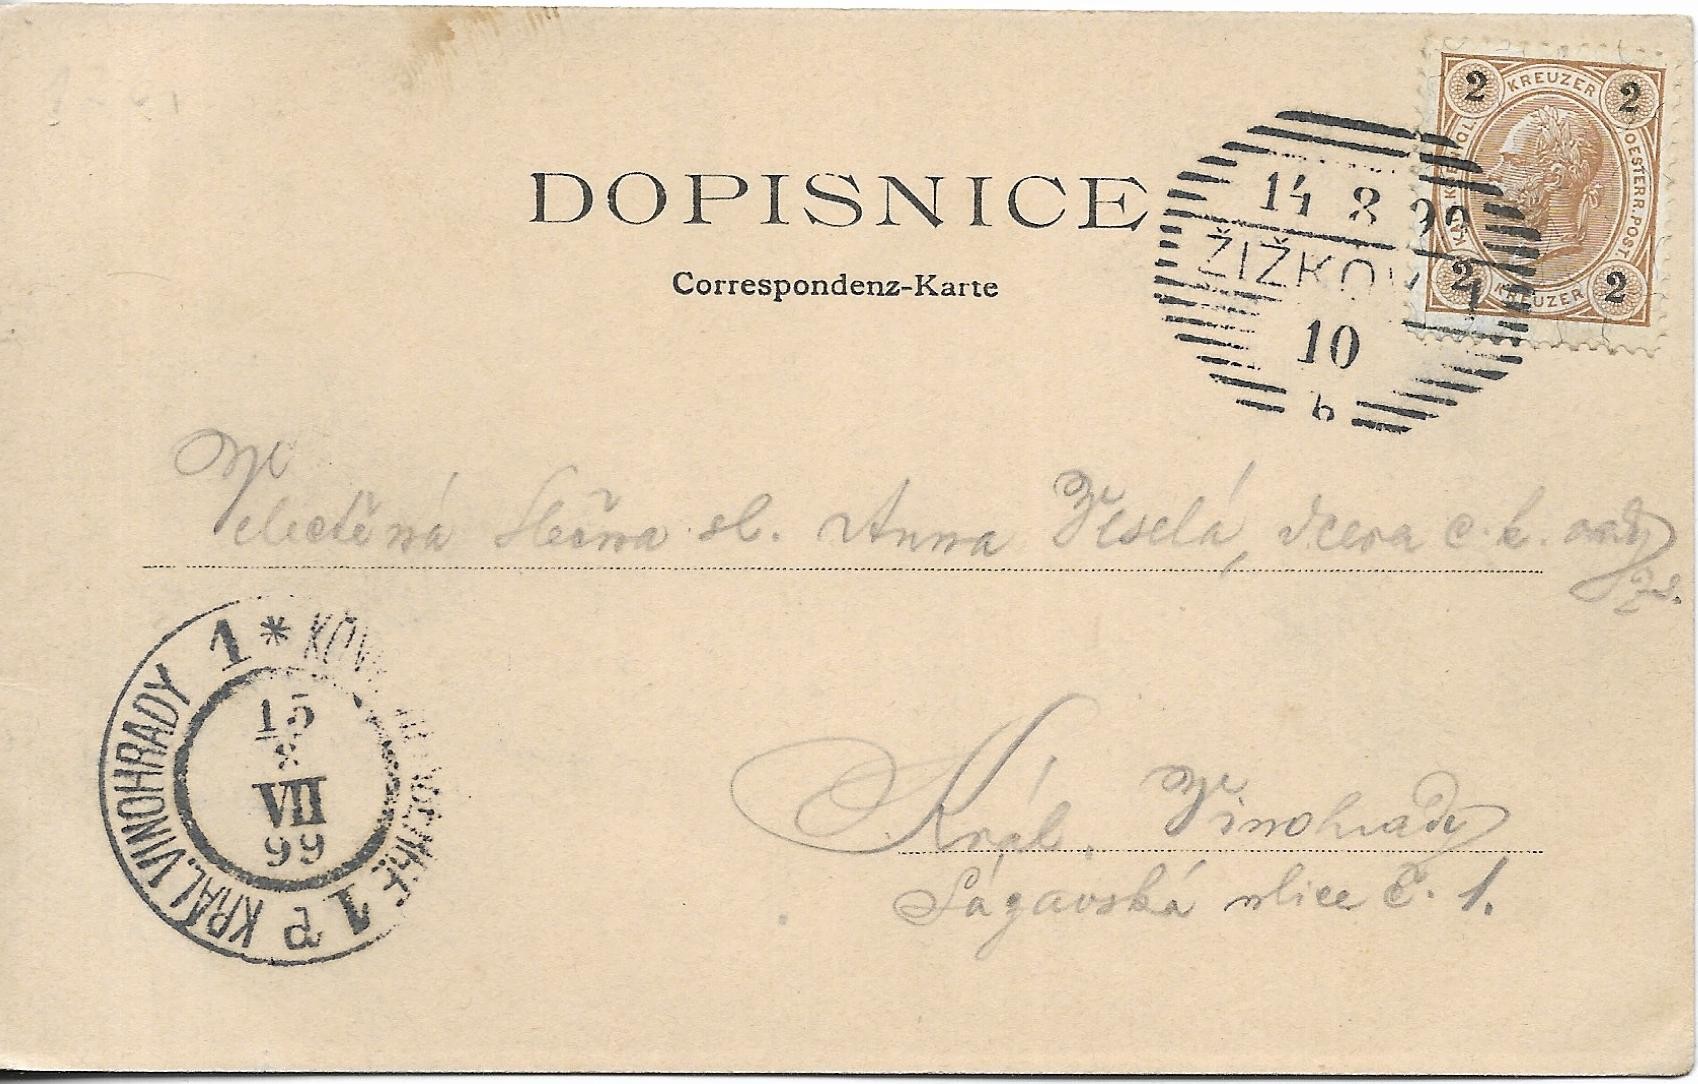 DOPISNICE
Correspondenz-Karte
2 KREUZER 2
KAIS. KOENIGL. OESTERR. POST
2 KREUZER 2
14 8 99
ŽIŽKOV 1
10
b
Velectěná Slečna sl. Anna Veselá, dcera c. k. rady
Král. Vinohrady
Sázavská ulice č. 1.
1 * KRÁL. VINOHRADY 1
15
VII
99